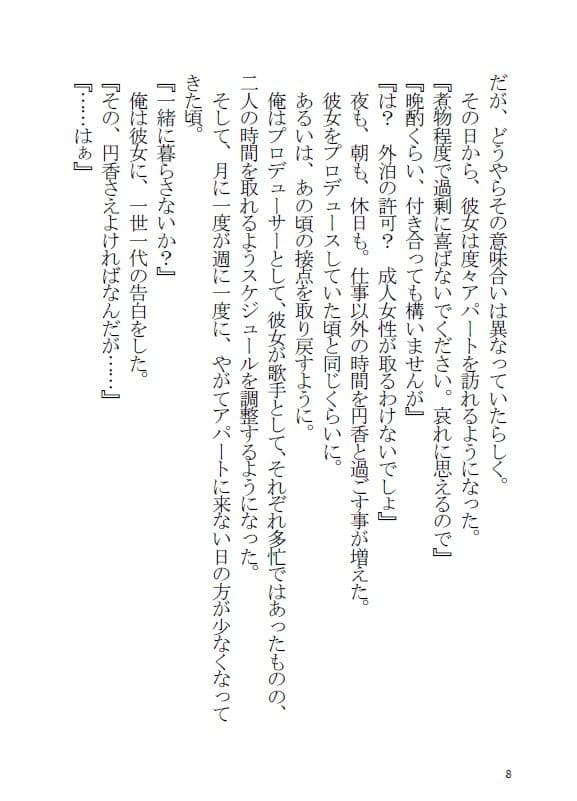 だが、どうやらその意味合いは異なっていたらしく。
その日から、彼女は度々アパートを訪れるようになった。
『煮物程度で過剰に喜ばないでください。哀れに思えるので』
『晩酌くらい、付き合っても構いませんが』
『は?　外泊の許可?　成人女性が取るわけないでしょ』
夜も、朝も、休日も。仕事以外の時間を円香と過ごす事が増えた。
彼女をプロデュースしていた頃と同じくらいに。
あるいは、あの頃の接点を取り戻すように。
俺はプロデューサーとして、彼女が歌手として、それぞれ多忙ではあったものの、
二人の時間を取れるようスケジュールを調整するようになった。
そして、月に一度が週に一度に、やがてアパートに来ない日の方が少なくなって
きた頃。
『一緒に暮らさないか?』
俺は彼女に、一世一代の告白をした。
『その、円香さえよければなんだが……』
『……はぁ』
8